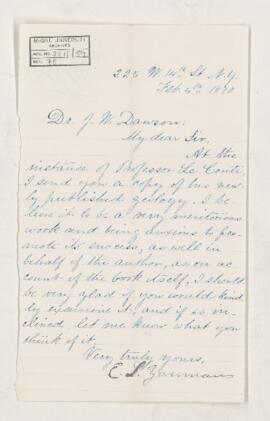 McGILL UNIVERSITY
ARCHIVES
ACC. NO.
REF.
225 W. 14th St. N.Y.
Feb. 5th 1878
Dr. J. W. Dawson:
My dear Sir,
At the
instance of Professor Le Conte,
I send you a copy of his new-
ly published geology. I be-
lieve it to be a very meritorious
work and being anxious to pro-
mote its success, as well in
behalf of the author, as on ac-
count of the book itself, I should
be very glad if you would kind-
ly examine it, and if so in-
clined, let me know what you
think of it.
Very truly yours,
E. L. Youmans